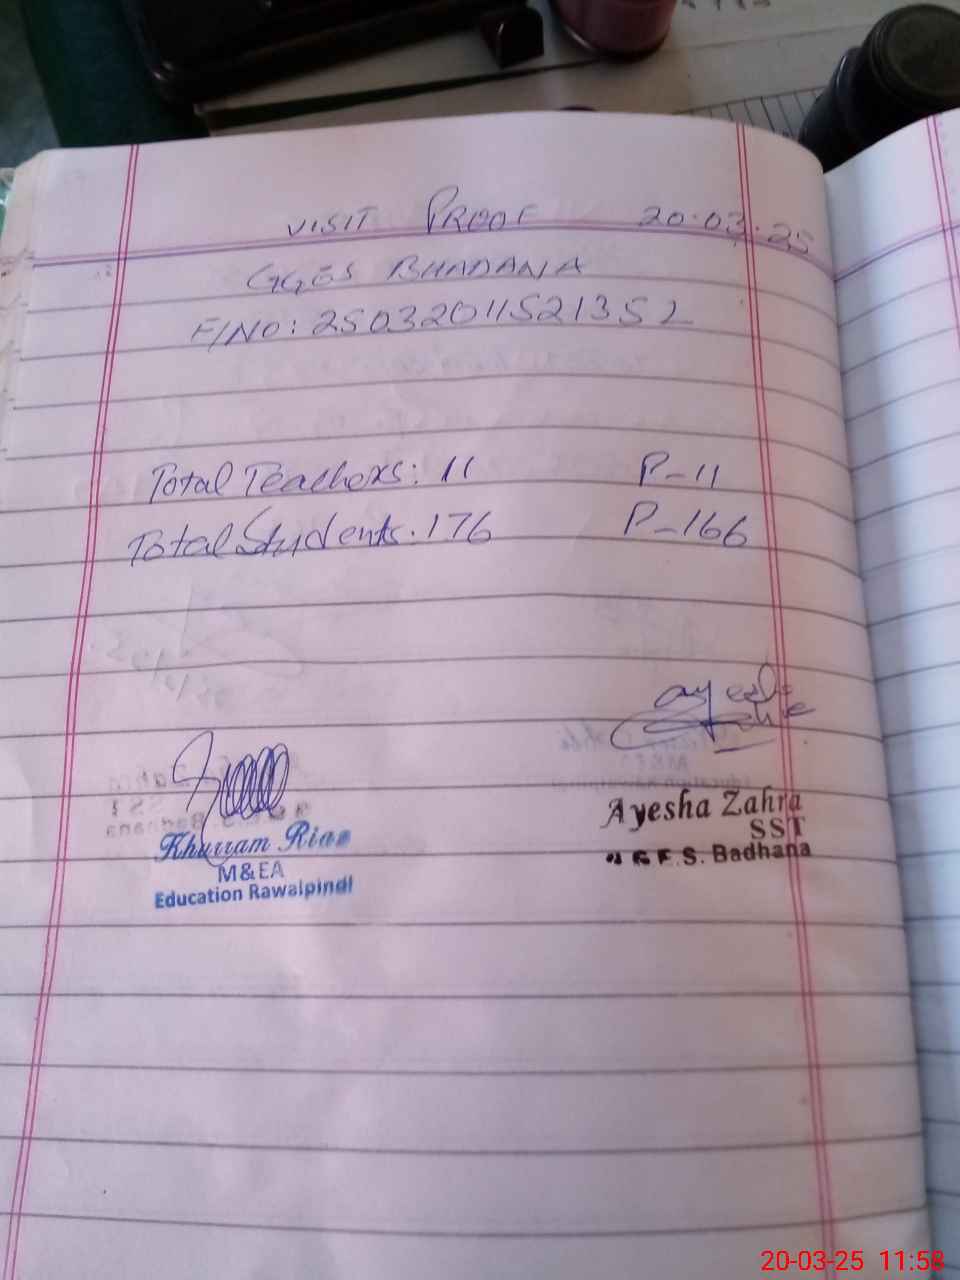 VISIT PROOF 20.03.25
GGES BHADANA
F/NO: 2503201152135L
Total Teachers: 11 P-11
Total Students. 176 P-166
Ayesha
Khurram Riaz
M&EA
Education Rawalpindi
Ayesha Zahra
SST
G.E.S. Badhana
20-03-25 11:58